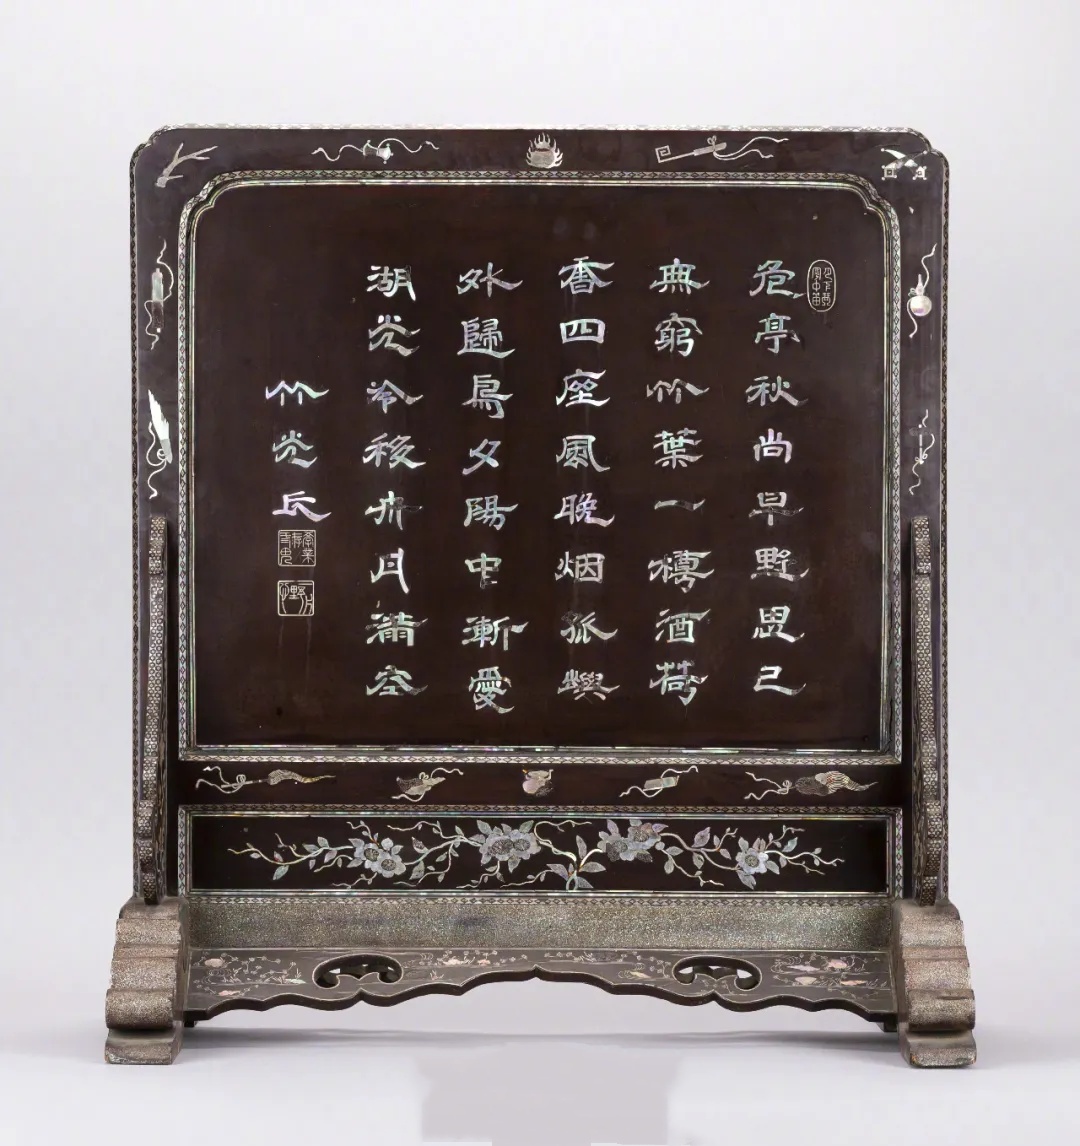 危亭秋尚早野思已
無窮竹葉一樽酒荷
香四座風晚烟孤嶼
外歸鳥夕陽中漸愛
湖光冷移舟月滿空
竹光氏